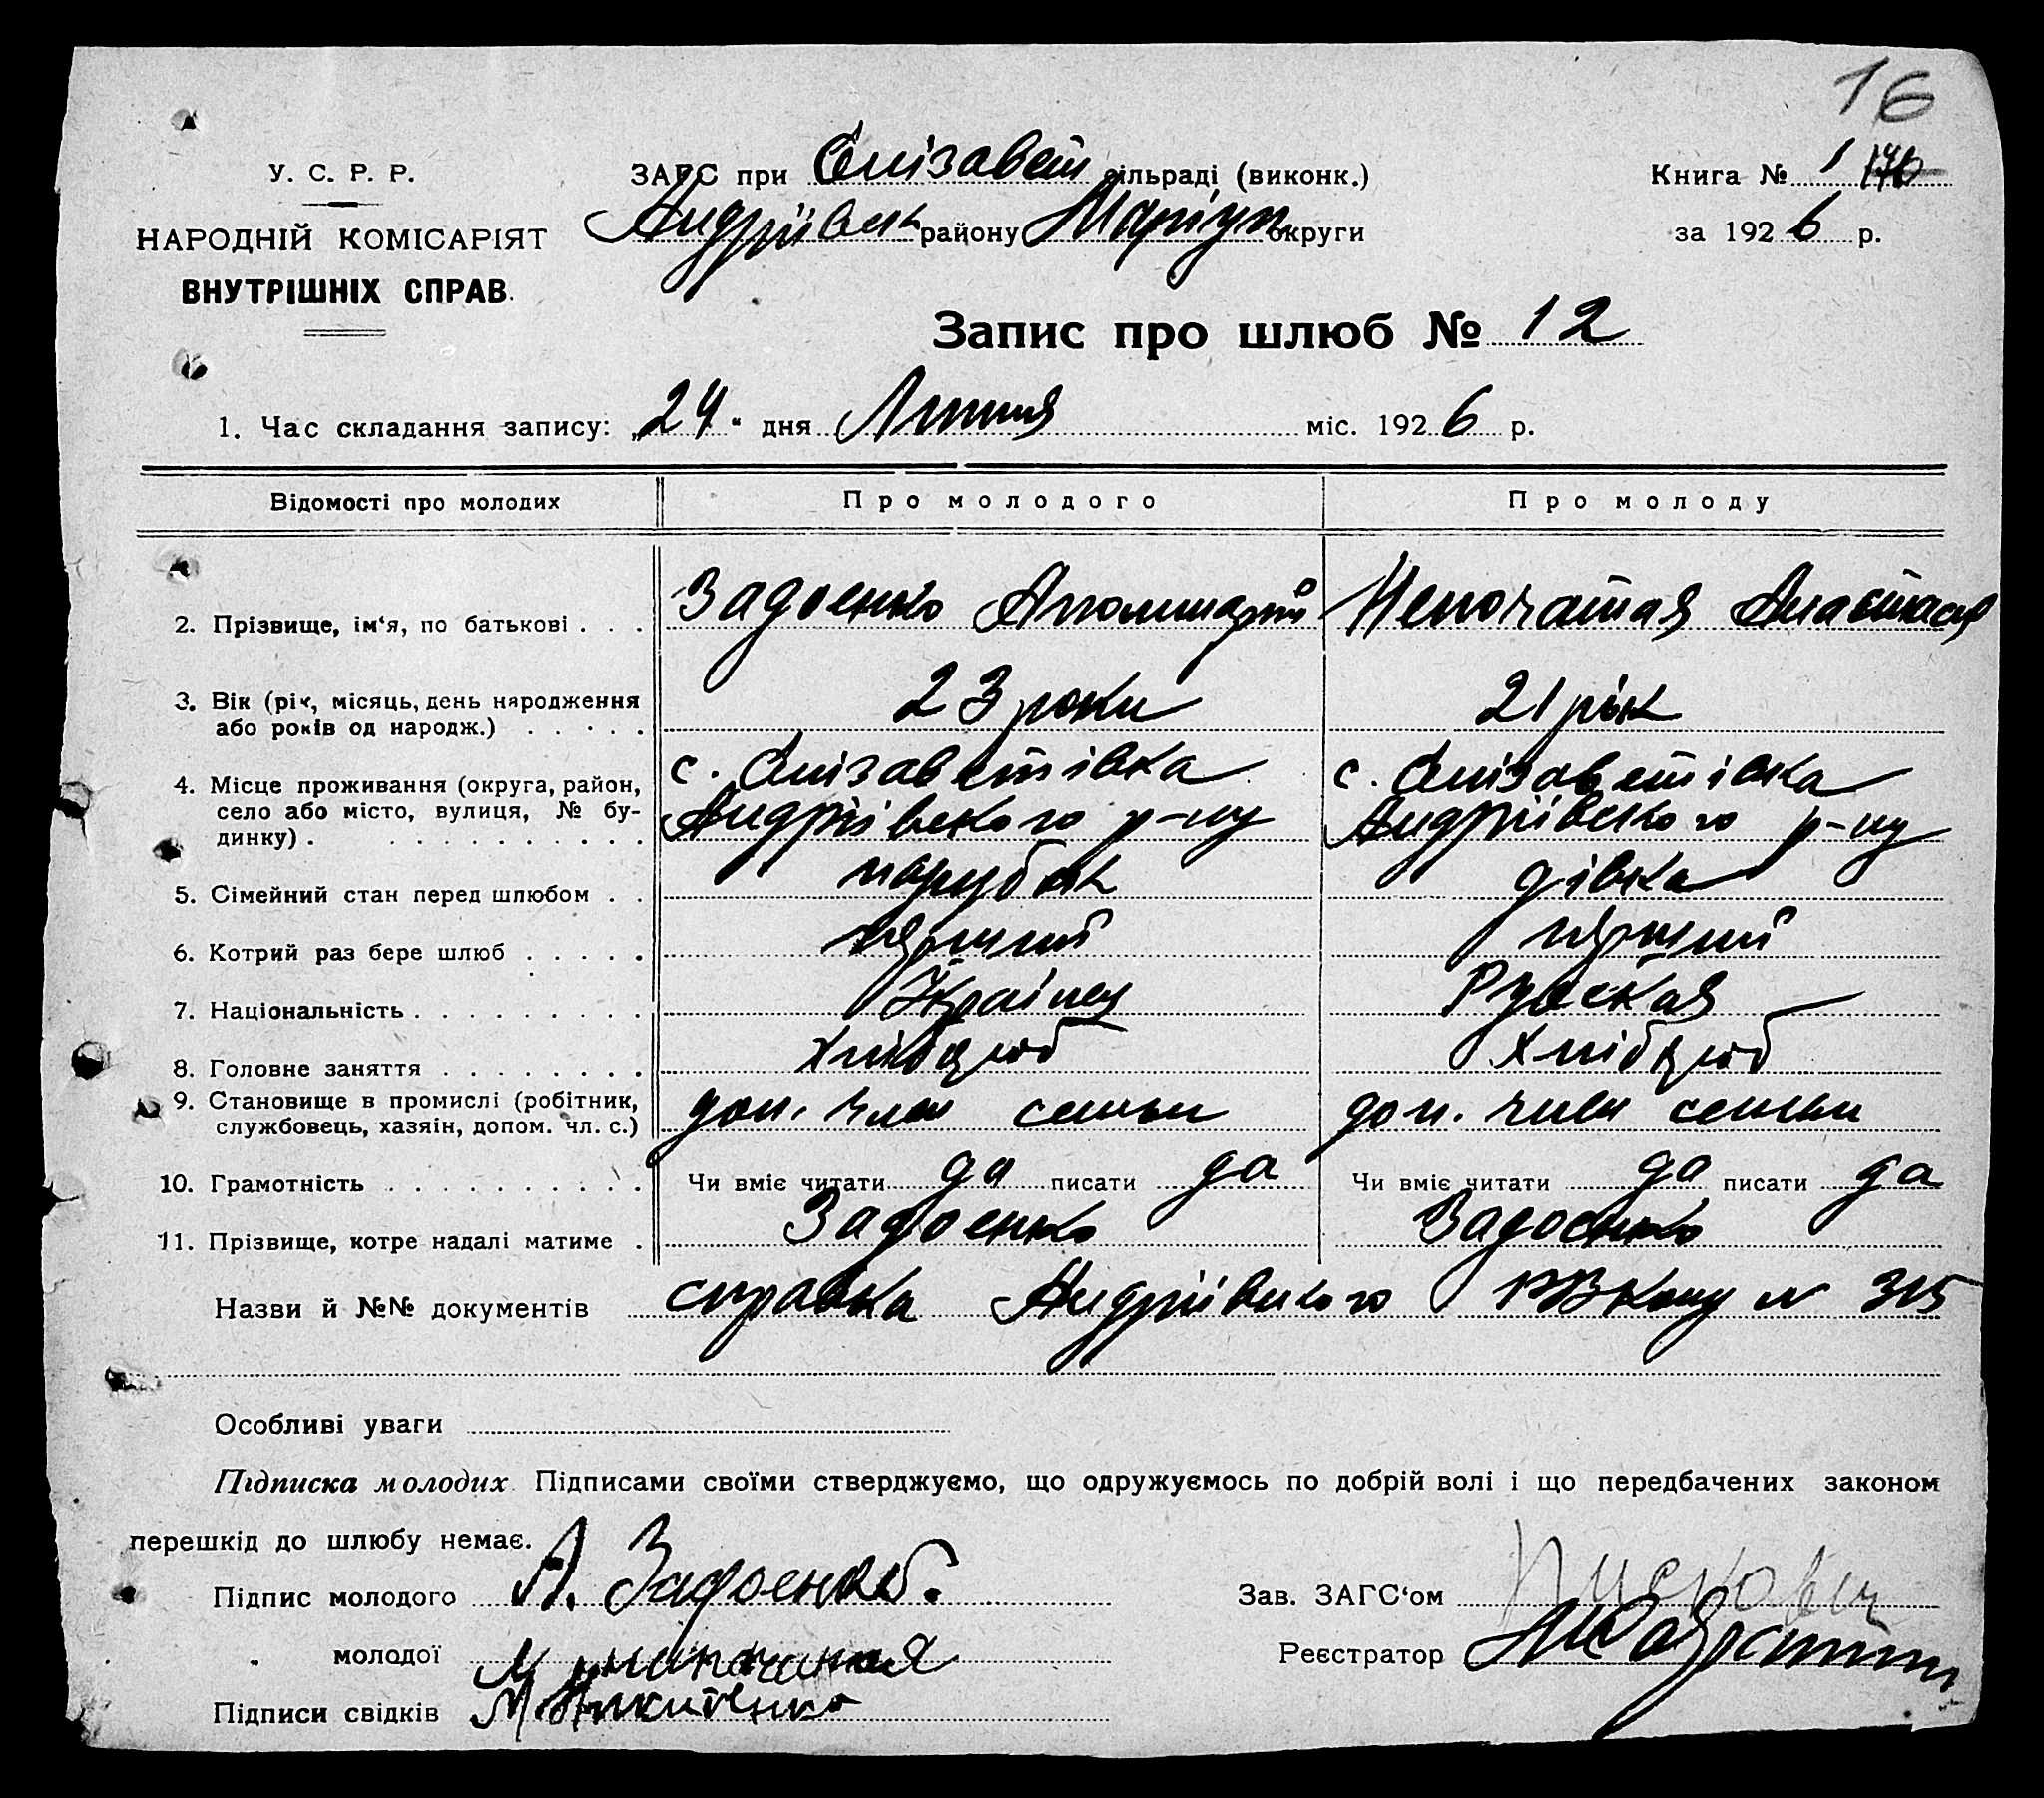 16
У. С. Р. Р.
НАРОДНІЙ КОМІСАРІЯТ
ВНУТРІШНІХ СПРАВ.
ЗАГС при Єлізавет сільраді (виконк.)
Андріївськ району Маріуп округи
Книга № 1
за 1926 р.
Запис про шлюб № 12
1. Час складання запису: „24“ дня Липня міс. 1926 р.
Відомості про молодих
Про молодого
Про молоду
2. Прізвище, ім‘я, по батькові . . .
Задоенко Аполинарий
Непочатая Анастасия
3. Вік (рік, місяць, день народження
або років од народж.) . . . . .
23 роки
21 рік
4. Місце проживання (округа, район,
село або місто, вулиця, № бу-
динку) . . . . . . . . . . .
с. Єлізаветівка
Андріївського р-ну
с. Єлізаветівка
Андріївського р-ну
5. Сімейний стан перед шлюбом . .
парубок
дівка
6. Котрий раз бере шлюб . . . . .
перший
перший
7. Національність . . . . . . . . .
Українец
Руская
8. Головне заняття . . . . . . . .
Хлібороб
Хлібороб
9. Становище в промислі (робітник,
службовець, хазяін, допом. чл. с.)
доп. член семьи
доп. член семьи
10. Грамотність . . . . . . . . . .
Чи вміє читати да писати да
Чи вміє читати да писати да
11. Прізвище, котре надалі матиме .
Задоенко
Задоенко
Назви й №№ документів справка Андріївского РВКому № 315
Особливі уваги
Підписка молодих. Підписами своїми стверджуємо, що одружуємось по добрій волі і що передбачених законом
перешкід до шлюбу немає.
Підпис молодого А. Задоенко.
Зав. ЗАГС‘ом
„ молодої
Реєстратор
Підписи свідків Никитенко